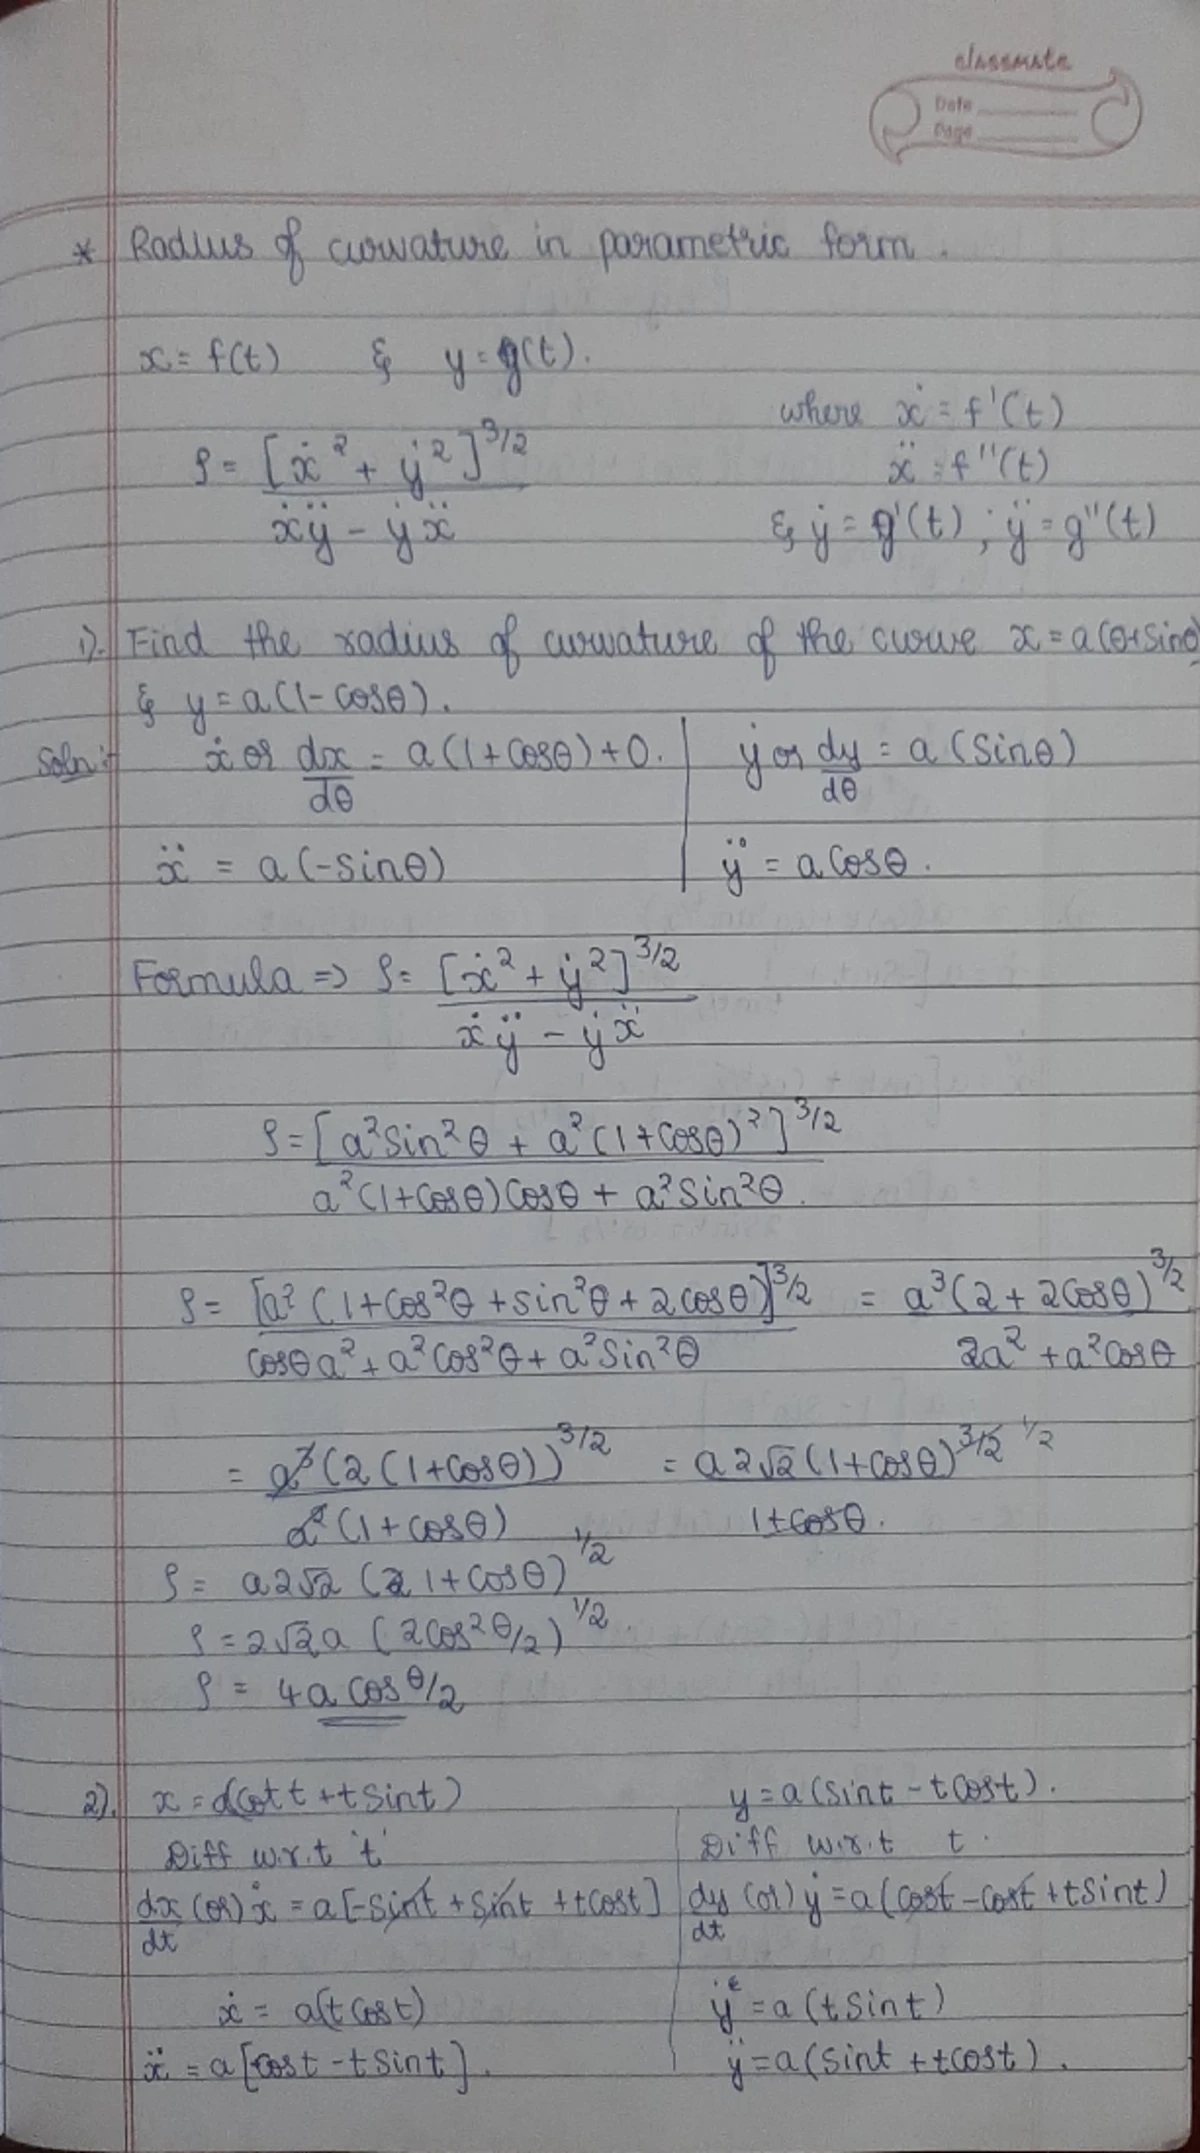 classmate
Date
Page
* Radius of curvature in parametric form.
x = f(t) & y = g(t).
where ẋ = f'(t)
ρ = [ẋ² + ẏ²]^3/2 / ẋÿ - ẏẍ
ẍ = f''(t)
& ẏ = g'(t) ; ÿ = g''(t)
1). Find the radius of curvature of the curve x = a(θ+sinθ)
& y = a(1-cosθ).
Soln:- ẋ or dx/dθ = a(1+cosθ)+0. | ẏ or dy/dθ = a(sinθ)
ẍ = a(-sinθ) | ÿ = a cosθ.
Formula => ρ = [ẋ² + ẏ²]^3/2 / ẋÿ - ẏẍ
ρ = [a²sin²θ + a²(1+cosθ)²]^3/2 / a²(1+cosθ)cosθ + a²sin²θ.
ρ = [a²(1+cos²θ+sin²θ+2cosθ)]^3/2 / cosθa²+a²cos²θ+a²sin²θ = a³(2+2cosθ)^3/2 / 2a²+a²cosθ
= a³(2(1+cosθ))^3/2 / a²(1+cosθ) = a2√2(1+cosθ)^3/2 ^1/2 / 1+cosθ.
ρ = a2√2 (1+cosθ)^1/2
ρ = 2√2a (2cos²θ/2)^1/2.
ρ = 4a cosθ/2
2). x = a(cost t + t sint) y = a(sint - t cost).
Diff w.r.t 't' | Diff w.r.t t.
dx/dt (or) ẋ = a[-sint + sint + tcost] | dy/dt (or) ẏ = a(cost - cost + tsint)
ẋ = a(t cost) | ẏ = a(t sint)
ẍ = a[cost - t sint]. | ÿ = a(sint + tcost).